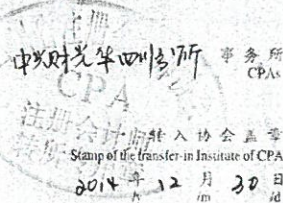 中兴财光华四川分所 事务所
CPAs
CPA
注册会计师
转入协会盖章
Stamp of the transfer-in Institute of CPA
2014 年 12 月 30 日
/y /m /d